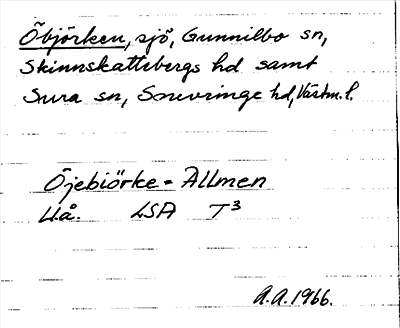 Öbjörken, sjö, Gunnilbo sn,
Skinnskattebergs hd samt
Sura sn, Snevringe hd, Västm.l.
Öjebiörke = Allmen
U.å. LSA T3
A.A. 1966.